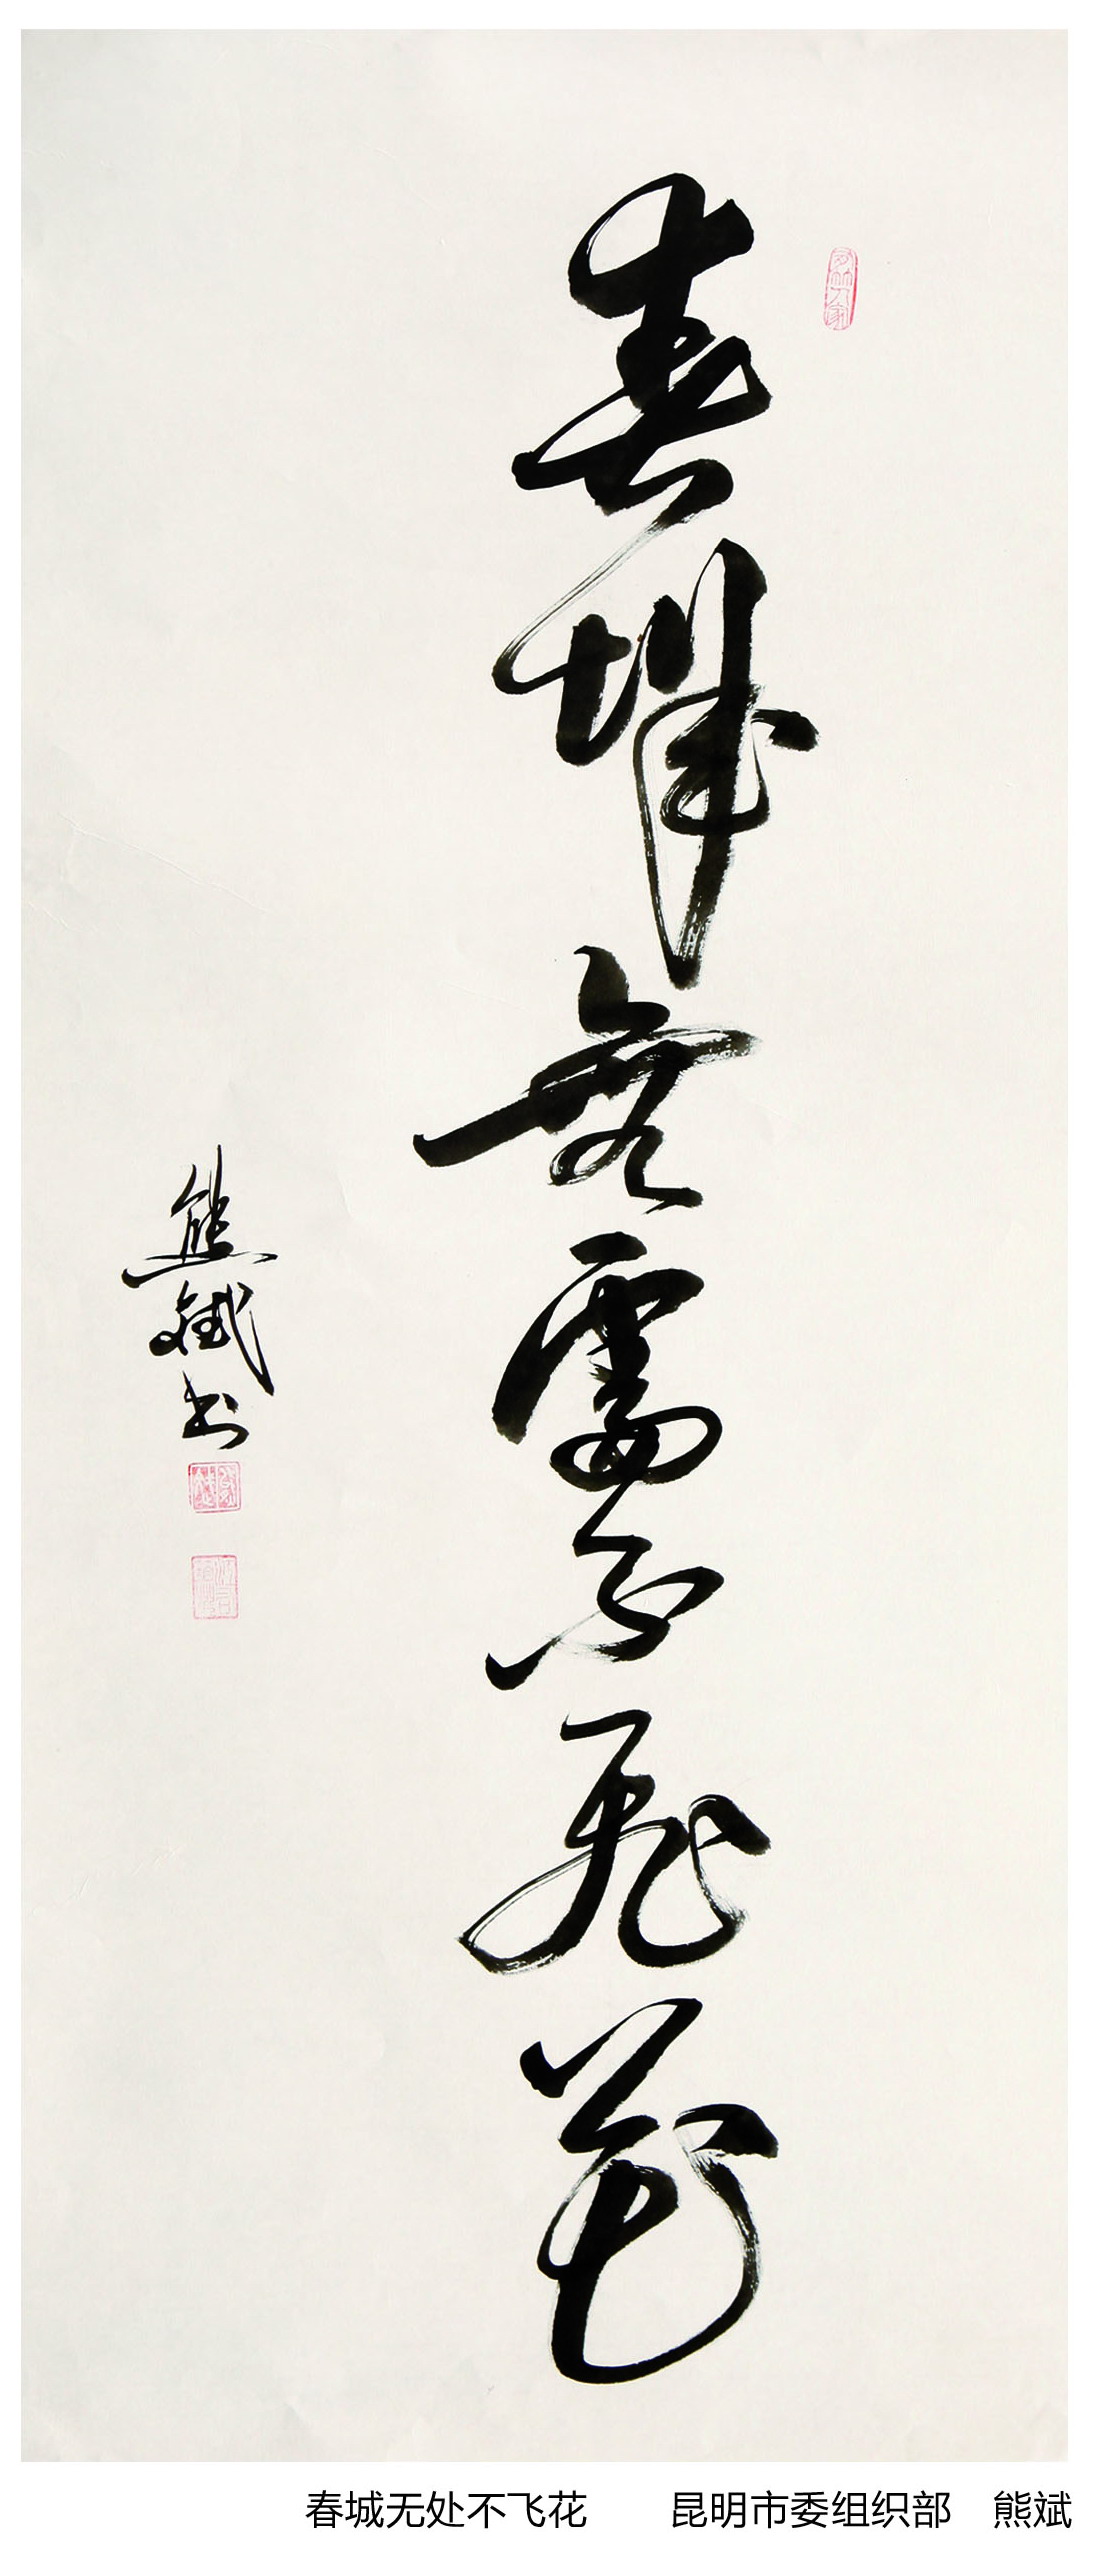 春城無處不飛花
熊斌书
春城无处不飞花 昆明市委组织部 熊斌